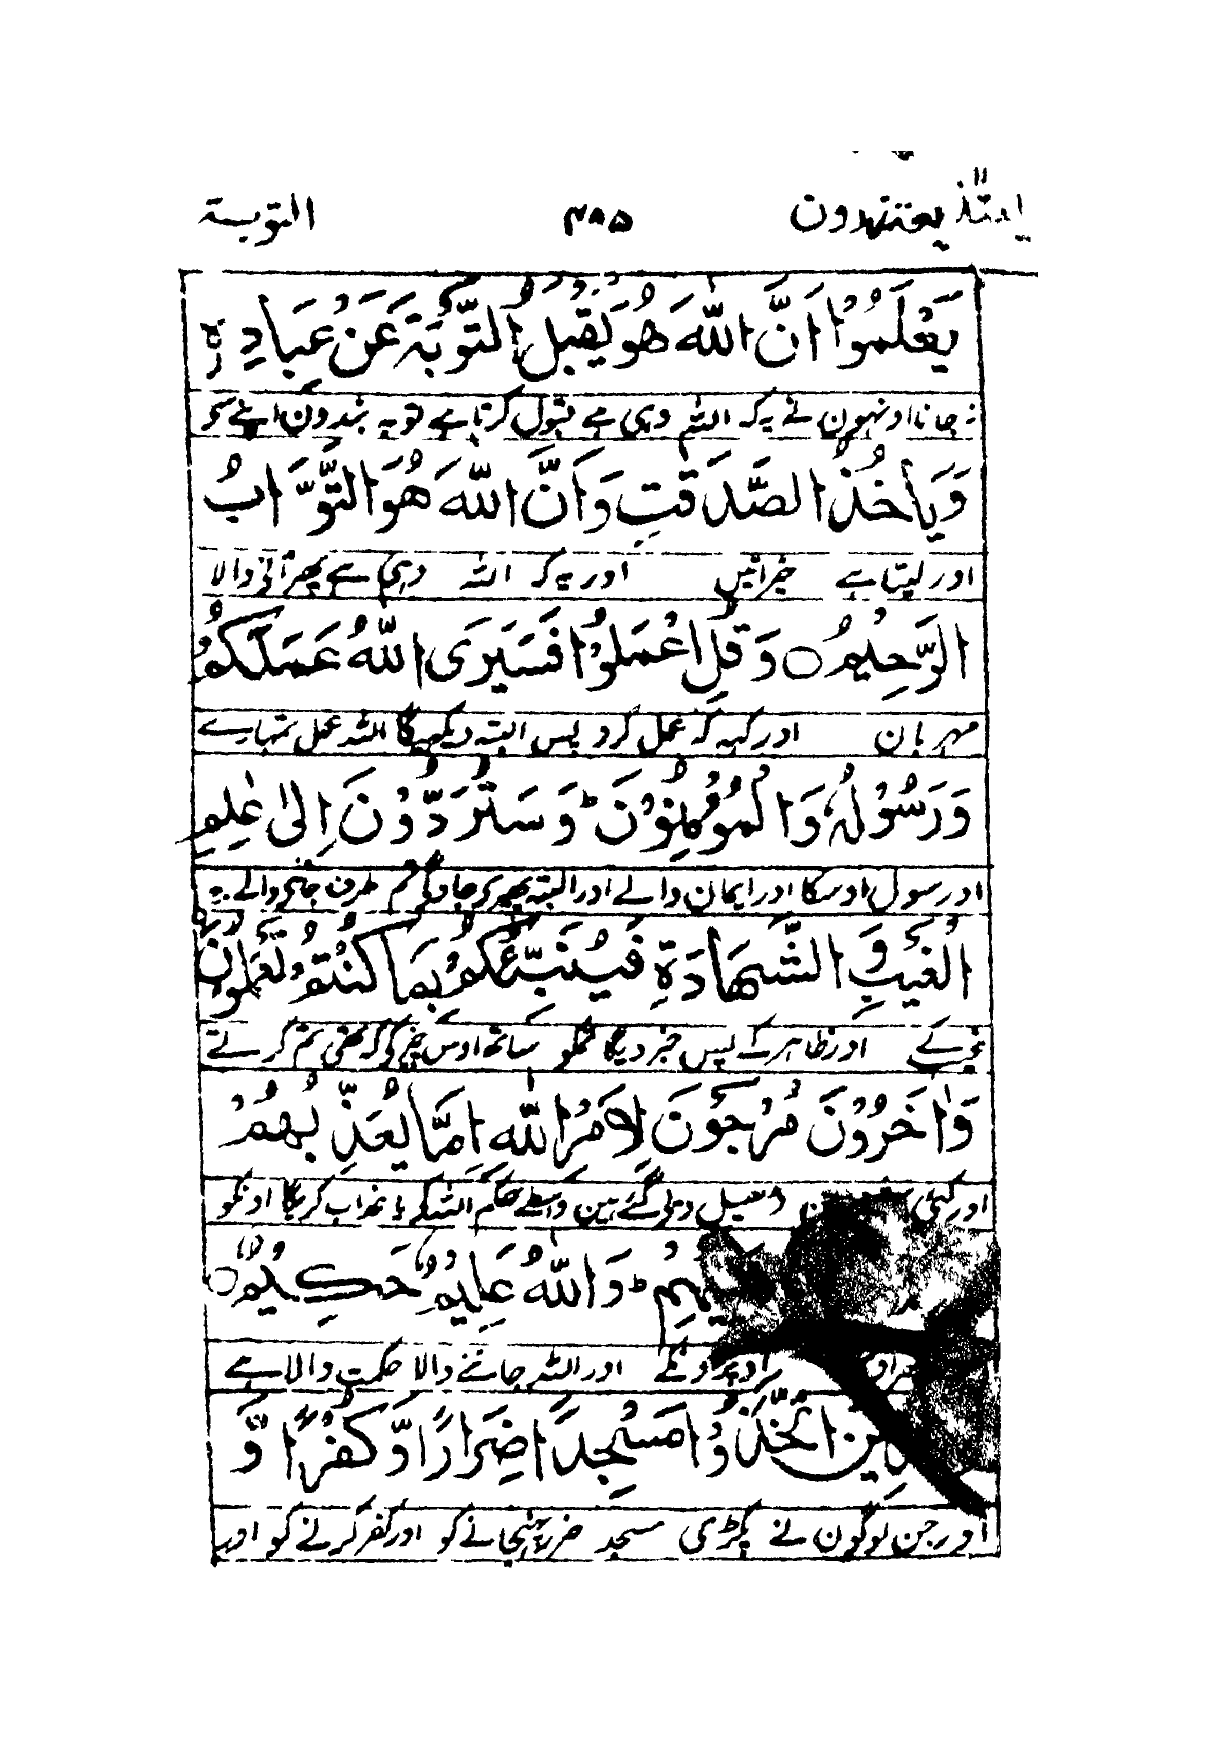 یعتذرون ۴۸۵ التوبة
يَعْلَمُوْۤا اَنَّ اللّٰهَ هُوَ يَقْبَلُ التَّوْبَةَ عَنْ عِبَادِهٖ
نہ جانا اونہون نے یہ کہ اللہ وہی ہے قبول کرتا ہے توبہ بندون اپنے سے
وَيَاْخُذُ الصَّدَقٰتِ وَاَنَّ اللّٰهَ هُوَ التَّوَّابُ
اور لیتا ہے خیراتیں اور یہ کہ اللہ وہی ہے پھر آنے والا
الرَّحِيْمُ ○ وَقُلِ اعْمَلُوْا فَسَيَرَى اللّٰهُ عَمَلَكُمْ
مہربان اور کہہ کہ عمل کرو پس البتہ دیکھیگا اللہ عمل تمہارے
وَرَسُوْلُهٗ وَالْمُؤْمِنُوْنَ ؕ وَسَتُرَدُّوْنَ اِلٰى عٰلِمِ
اور رسول اوسکا اور ایمان والے اور البتہ پھیرے جاوگے تم طرف جاننے والے
الْغَيْبِ وَالشَّهَادَةِ فَيُنَبِّئُكُمْ بِمَا كُنْتُمْ تَعْمَلُوْنَ
اور ظاہر کے پس خبر دیگا تمکو ساتھ اوس چیز کے کہ تھے تم کرتے
وَاٰخَرُوْنَ مُرْجَوْنَ لِاَمْرِ اللّٰهِ اِمَّا يُعَذِّبُهُمْ
اور کئی ڈھیل دئے گئے ہین واسطے حکم اللہ کے یا عذاب کریگا اونکو
عَلَيْهِمْ ؕ وَاللّٰهُ عَلِيْمٌ حَكِيْمٌ ○
اوپر اونکے اور اللہ جاننے والا حکمت والا ہے
اتَّخَذُوْا مَسْجِدًا ضِرَارًا وَّكُفْرًا وَّ
اور جن لوگون نے پکڑی مسجد ضرر پہنچانے کو اور کفر کرنے کو اور